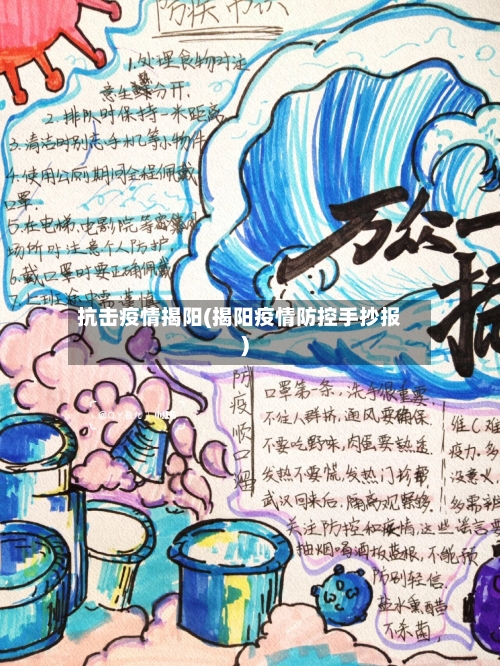 防疾知识
1.处理食物时注
意生熟分开.
2.排队时保持一米距离
3.清洁时别忘手机等小物件
4.使用公厕期间全程佩戴
口罩.
5.在电梯,电影院等密集
场所时注意个人防护
6.戴口罩时要正确佩戴
万众一
抗击疫情揭阳(揭阳疫情防控手抄报
)
防疫顺口溜
口罩第一条,洗手很重要.
不往人群挤,通风要确保.
不要吃野味,肉蛋要熟透.
发热不要慌,发热门诊
武汉回来后,隔离观察
关注防控和疫情,这些谣言
抽烟喝酒板蓝根,不能预
防别轻信.
盐水熏醋
不杀菌,
维C难
疫力.多
没意义
多需